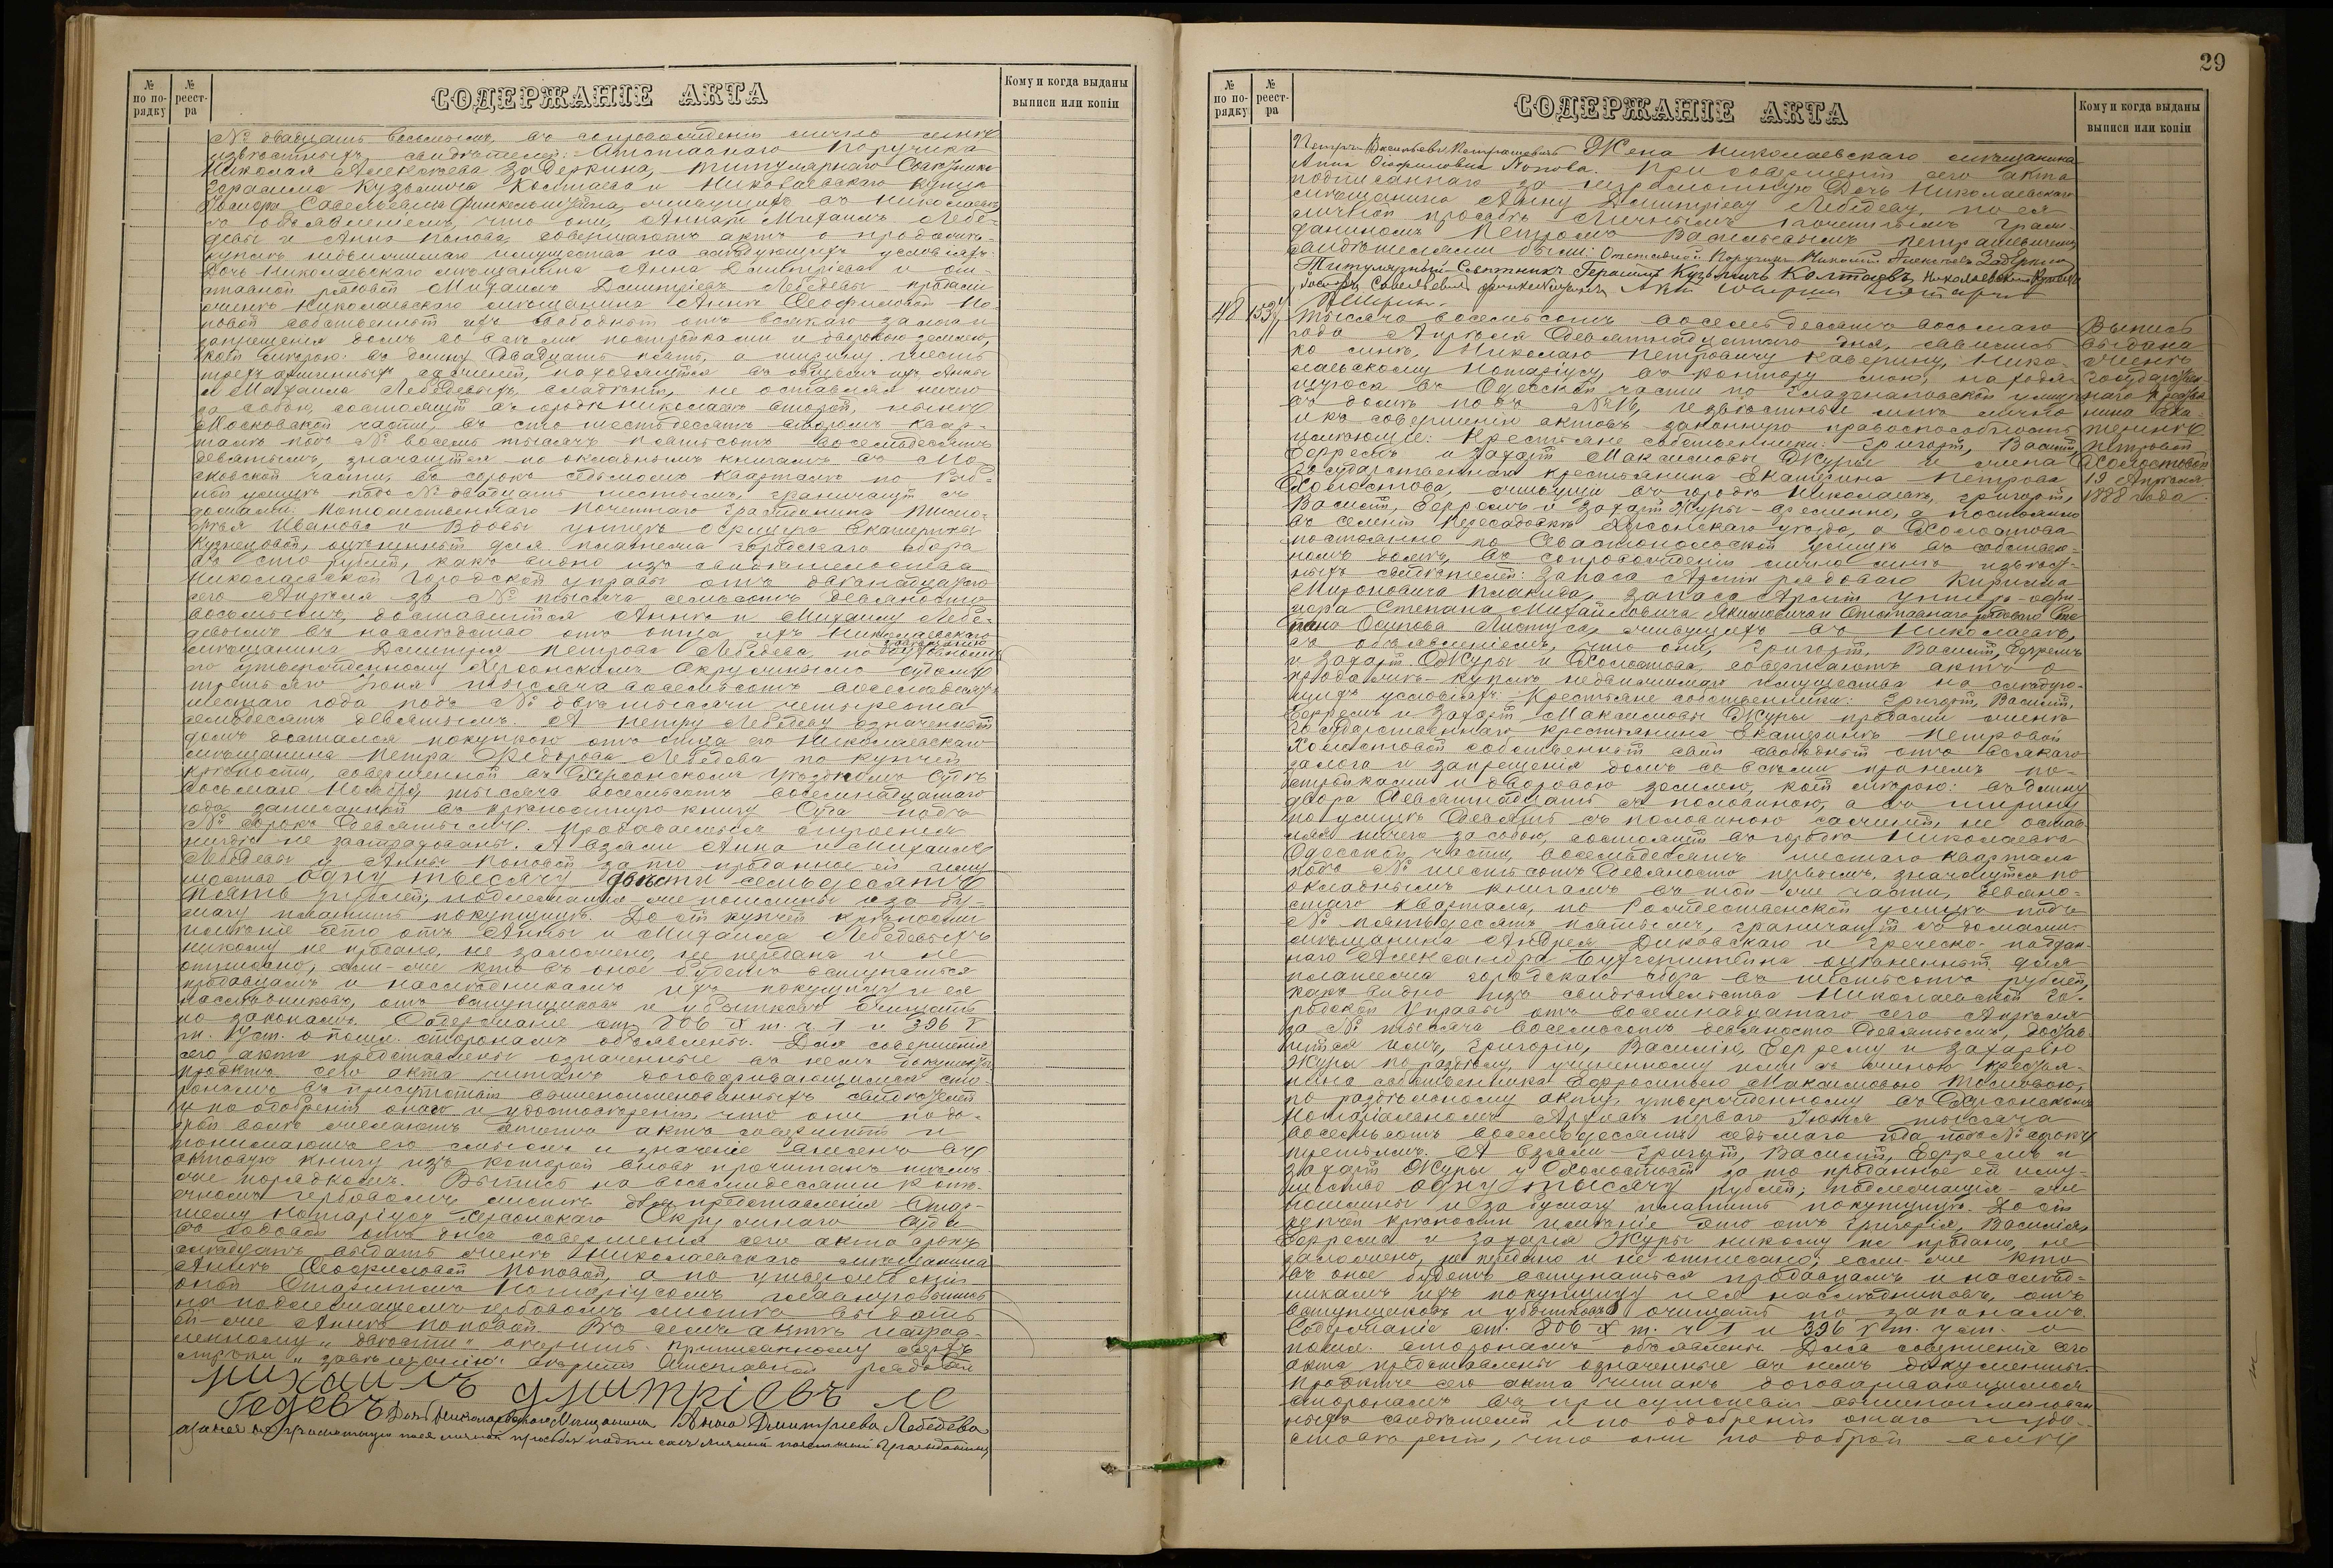 № по по-рядку
№ реест-ра
СОДЕРЖАНІЕ АКТА
Кому и когда выданы выписи или копіи
№ двадцать восьмымъ, въ сопровожденіи лично мнѣ
извѣстныхъ свидѣтелей: Отставнаго Поручика
Николая Алексѣева Задеркина, Титулярнаго Совѣтника
Герасима Кузьмича Колтаева и Николаевскаго купца
Савельевича Финкельштейна, живущихъ въ Николаевѣ
съ объявленіемъ, что они, Анна и Михаилъ Лебе-
девы и Анна Попова, совершаютъ актъ о продажѣ-
купкѣ недвижимаго имущества на слѣдующихъ условіяхъ:
Дочь Николаевскаго мѣщанина Анна Дмитріева и от-
ставной рядовой Михаилъ Дмитріевъ Лебедевы продали
женѣ Николаевскаго мѣщанина Аннѣ Ѳеофиловой По-
повой собственный ихъ свободный отъ всякаго залога и
запрещенія домъ со всѣми постройками и дворовою землею,
коей мѣрою: въ длину двадцать пять, а ширину шесть
трехъ аршинныхъ саженей, находящійся въ общемъ ихъ Анны
и Михаила Лебедевыхъ владѣніи, не оставляя ничего
за собою, состоящій въ городѣ Николаевѣ второй, нынѣ
Московской части, въ сто шестьдесятъ второмъ квар-
талѣ подъ № восемь тысячъ пятьсотъ восемьдесятъ
девятымъ, значащійся по окладнымъ книгамъ въ Мо-
сковской части, въ сорокъ седьмомъ кварталѣ по Рыб-
ной улицѣ подъ № двадцать шестымъ, граничащій съ
домами: Потомственнаго Почетнаго Гражданина
Иванова и Вдовы унтеръ офицера Екатерины
Кузнецовой, оцѣненный для платежа городскаго сбора
въ сто рублей, какъ видно изъ свидѣтельства
Николаевской Городской Управы отъ двѣнадцатаго
сего Апрѣля за № тысяча семьсотъ девяносто
восьмымъ, доставшійся Аннѣ и Михаилу Лебе-
девымъ въ наслѣдство отъ отца ихъ Николаевскаго
мѣщанина Дмитрія Петрова Лебедева, по
его утвержденному Херсонскимъ Окружнымъ Судомъ
третьяго Іюня тысяча восемьсотъ восемьдесятъ
шестаго года подъ № двѣ тысячи четыреста
семьдесятъ девятымъ. А Петру Лебедеву означенный
домъ достался покупкою отъ отца его Николаевскаго
мѣщанина Петра Ѳедорова Лебедева по купчей
крѣпости, совершенной въ Херсонскомъ Уѣздномъ Судѣ
восьмаго Ноября тысяча восемьсотъ восемнадцатаго
года записанной въ крѣпостную книгу Суда подъ
№ сорокъ девятымъ. Продаваемыя строенія
нигдѣ не застрахованы. А взяли Анна и Михаилъ
Лебедевы у Анны Поповой за то проданное ей иму-
щество одну тысячу двѣсти семьдесятъ
пять рублей, подлежащія же пошлины и за бу-
магу платитъ покупщица. До сей купчей крѣпости
имѣніе это отъ Анны и Михаила Лебедевыхъ
никому не продано, не заложено, не передано и не
отписано, если-же кто въ оное будетъ вступаться
продавцамъ и наслѣдникамъ ихъ покупщицу и ея
наслѣдниковъ, отъ вступщиковъ и убытковъ очищать
по законамъ. Содержаніе ст. 706 X т. ч. 1 и 396 V
т. Уст. о пошл. сторонамъ объявлены. Для совершенія
сего акта представлены означенные въ немъ документы
проектъ сего акта читанъ договаривающимся сто-
ронамъ въ присутствіи вышепоименованныхъ свидѣтелей
и по одобреніи онаго и удостовѣреніи, что они по до-
брой волѣ желаютъ этотъ актъ совершить и
понимаютъ его смыслъ и значеніе внесенъ въ
актовую книгу изъ которой вновь прочитанъ тѣмъ-
же порядкомъ. Выпись на восьмидесяти копѣ-
ечномъ гербовомъ листѣ для представленія Стар-
шему Нотаріусу Херсонскаго Окружнаго Суда
въ годовой отъ дня совершенія сего акта срокъ
слѣдуетъ выдать женѣ Николаевскаго мѣщанина
Аннѣ Ѳеофиловой Поповой, а по утвержденіи
оной Старшимъ Нотаріусомъ главную выпись
на подлежащемъ гербовомъ листѣ выдать
ей-же Аннѣ Поповой. Въ семъ актѣ исправ-
ленному „двѣсти“ вѣрить. Приписанному сверхъ
строки „завѣщанію“ вѣрить Отставной рядовой
михаилъ дмитріевъ ле
бедевъ Дочь Николаевскаго Мѣщанина Анна Дмитріева Лебедева
а за нея неграмотную по ея личной просьбѣ подписалъ личный почетный гражданинъ
29
№ по по-рядку
№ реест-ра
СОДЕРЖАНІЕ АКТА
Кому и когда выданы выписи или копіи
Петръ Васильевъ Петрашевичъ Жена Николаевскаго мѣщанина
Анна Ѳіофиловна Попова. При совершеніи сего акта
подписаннаго за неграмотную Дочь Николаевскаго
мѣщанина Анну Дмитріеву Лебедеву, по ея
личной просьбѣ Личнымъ почетнымъ Граж-
даниномъ Петромъ Васильевымъ Петрашевичемъ
свидѣтелями были: Отставной Поручикъ Николай Алексѣевъ Задеркин
Титулярный Совѣтникъ Герасимъ Кузьмичъ Колтаевъ, Николаевскій Купецъ
Савельевичъ Финкельштейнъ Актъ совершилъ Нотаріусъ
48 153
Тысяча восемьсотъ восемьдесятъ восьмаго
года Апрѣля Девятнадцатаго дня, явились
ко мнѣ, Николаю Петровичу Каверину, Нико-
лаевскому Нотаріусу, въ контору мою, находя-
щуюся въ Одесской части по Глазенаповской улицѣ
въ домѣ подъ №16, извѣстные мнѣ лично
и къ совершенію актовъ законную правоспособность
имѣющіе: Крестьяне собственники: Григорій, Василій,
Ефремъ и Захарій Максимовы Журы и жена
Государственнаго крестьянина Екатерина Петрова
Холостова, живущіе въ городѣ Николаевѣ, Григорій,
Василій, Ефремъ и Захарій Журы - временно, а постоянно
въ селеніи Пересадовкѣ Херсонскаго уѣзда, а Холостова
постоянно по Севастопольской улицѣ въ собствен-
номъ домѣ, въ сопровожденіи лично мнѣ извѣст-
ныхъ свидѣтелей: Запаса Арміи рядоваго Кирилла
Мироновича Плакида, запаса Арміи унтеръ-офи-
цера Степана Михайловича Якимовича и Отставнаго рядоваго Сте-
пана Осипова Листуса, живущихъ въ Николаевѣ,
съ объявленіемъ, что они, Григорій, Василій, Ефремъ
и Захарій Журы и Холостова, совершаютъ актъ о
продажѣ-купкѣ недвижимаго имущества на слѣдую-
щихъ условіяхъ: Крестьяне собственники: Григорій, Василій,
Ефремъ и Захарій Максимовы Журы продали женѣ
Государственнаго крестьянина Екатеринѣ Петровой
Холостовой собственный свой свободный отъ всякаго
залога и запрещенія домъ со всѣми при немъ по-
стройками и дворовою землею, коей мѣрою: въ длину
двора девятнадцать съ половиною, а въ ширину
по улицѣ девять съ половиною саженей, не остав-
ляя ничего за собою, состоящій въ городѣ Николаевѣ
Одесской части, восемьдесятъ шестаго квартала
подъ № шестьсотъ девяносто первымъ, значащійся по
окладнымъ книгамъ въ той-же части, девяно-
стаго квартала, по Рождественской улицѣ подъ
№ пятьдесятъ пятымъ, граничащій съ домами:
мѣщанина Андрея Диковскаго и Греческо-поддан-
наго Александра оцѣненный для
платежа городскаго сбора въ шестьсотъ рублей,
какъ видно изъ свидѣтельства Николаевской Го-
родской Управы отъ восемнадцатаго сего Апрѣля
за № тысяча восемьсотъ девяносто девятымъ, достав-
шійся имъ, Григорію, Василію, Ефрему и Захарію
Журы по раздѣлу, учиненному ими съ женою крестья-
нина собственника Ефросиньею Максимовою Томиловою,
по раздѣльному акту, утвержденному въ Херсонскомъ
Нотаріальномъ Архивѣ перваго Іюня тысяча
восемьсотъ восемьдесятъ седьмаго года подъ № сорокъ
третьимъ. А взяли Григорій, Василій, Ефремъ и
Захарій Журы у Холостовой за то проданное ей иму-
щество одну тысячу рублей; подлежащія-же
пошлины и за бумагу платитъ покупщица. До сей
купчей крѣпости имѣніе это отъ Григорія, Василія,
Ефрема и Захарія Журы никому не продано, не
заложено, не передано и не отписано; если-же кто
въ оное будетъ вступаться продавцамъ и наслѣд-
никамъ ихъ покупщицу и ея наслѣдниковъ, отъ
вступщиковъ и убытковъ очищать по законамъ.
Содержаніе ст. 706 X т. ч 1 и 396 V т. уст. о
пошл. сторонамъ объявлены. Для совершенія сего
акта представлены означенные въ немъ документы.
Проектъ сего акта читанъ договаривающимся
сторонамъ въ присутствіи вышепоименован-
ныхъ свидѣтелей и по одобреніи онаго и удо-
стовѣреніи, что они по доброй волѣ
Выпись
выдана
женѣ
Государствен-
наго крестья-
нина Ека-
теринѣ
Петровой
Холостовой
19 Апрѣля
1888 года